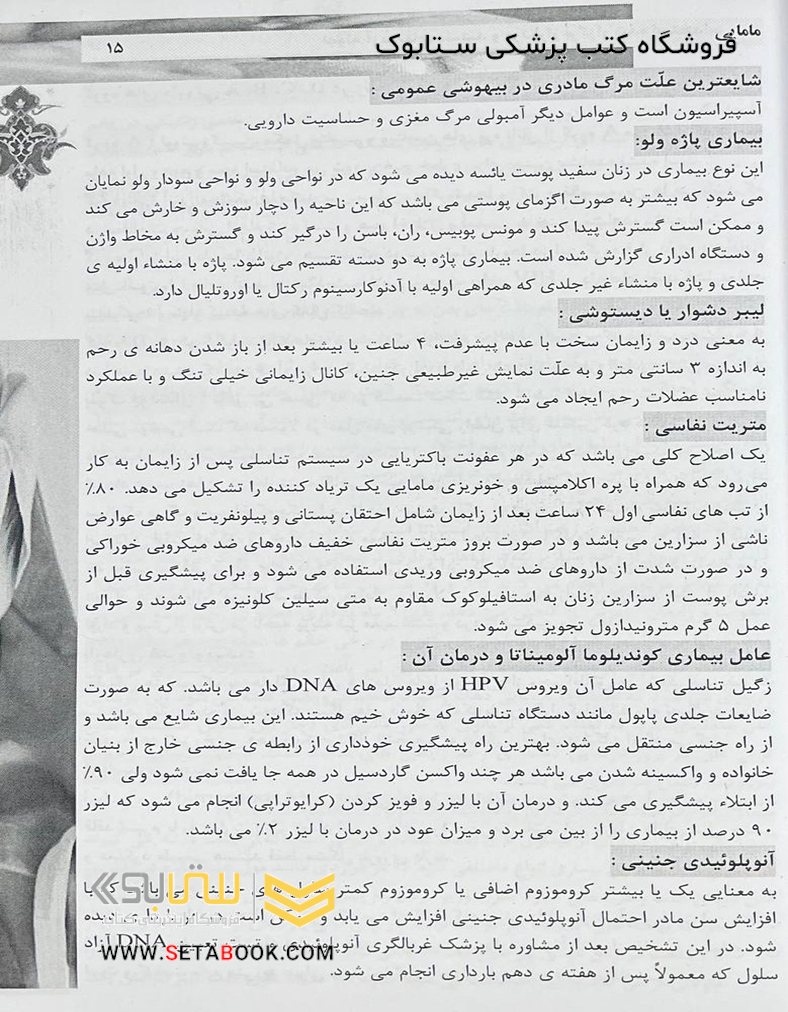 مامایی
فروشگاه کتب پزشکی ستابوک
۱۵
شایعترین علّت مرگ مادری در بیهوشی عمومی :
آسپیراسیون است و عوامل دیگر آمبولی مرگ مغزی و حساسیت دارویی.
بیماری پاژه ولو:
این نوع بیماری در زنان سفید پوست یائسه دیده می شود که در نواحی ولو و نواحی سودار ولو نمایان
می شود که بیشتر به صورت اگزمای پوستی می باشد که این ناحیه را دچار سوزش و خارش می کند
و ممکن است گسترش پیدا کند و مونس پوبیس، ران، باسن را درگیر کند و گسترش به مخاط واژن
و دستگاه ادراری گزارش شده است. بیماری پاژه به دو دسته تقسیم می شود. پاژه با منشاء اولیه ی
جلدی و پاژه با منشاء غیر جلدی که همراهی اولیه با آدنوکارسینوم رکتال یا اوروتلیال دارد.
لیبر دشوار یا دیستوشی :
به معنی درد و زایمان سخت با عدم پیشرفت، ۴ ساعت یا بیشتر بعد از باز شدن دهانه ی رحم
به اندازه ۳ سانتی متر و به علّت نمایش غیرطبیعی جنین، کانال زایمانی خیلی تنگ و با عملکرد
نامناسب عضلات رحم ایجاد می شود.
متریت نفاسی :
یک اصلاح کلی می باشد که در هر عفونت باکتریایی در سیستم تناسلی پس از زایمان به کار
می‌رود که همراه با پره اکلامپسی و خونریزی مامایی یک تریاد کننده را تشکیل می دهد. ۸۰٪
از تب های نفاسی اول ۲۴ ساعت بعد از زایمان شامل احتقان پستانی و پیلونفریت و گاهی عوارض
ناشی از سزارین می باشد و در صورت بروز متریت نفاسی خفیف داروهای ضد میکروبی خوراکی
و در صورت شدت از داروهای ضد میکروبی وریدی استفاده می شود و برای پیشگیری قبل از
برش پوست از سزارین زنان به استافیلوکوک مقاوم به متی سیلین کلونیزه می شوند و حوالی
عمل ۵ گرم مترونیدازول تجویز می شود.
عامل بیماری کوندیلوما آلومیناتا و درمان آن :
زگیل تناسلی که عامل آن ویروس HPV از ویروس های DNA دار می باشد. که به صورت
ضایعات جلدی پاپول مانند دستگاه تناسلی که خوش خیم هستند. این بیماری شایع می باشد و
از راه جنسی منتقل می شود. بهترین راه پیشگیری خودداری از رابطه ی جنسی خارج از بنیان
خانواده و واکسینه شدن می باشد هر چند واکسن گاردسیل در همه جا یافت نمی شود ولی ۹۰٪
از ابتلاء پیشگیری می کند. و درمان آن با لیزر و فویز کردن (کرایوتراپی) انجام می شود که لیزر
۹۰ درصد از بیماری را از بین می برد و میزان عود در درمان با لیزر ۲٪ می باشد.
آنوپلوئیدی جنینی :
به معنایی یک یا بیشتر کروموزوم اضافی یا کروموزوم کمتر جنینی می باشد که با
افزایش سن مادر احتمال آنوپلوئیدی جنینی افزایش می یابد و است دیده
شود. در این تشخیص بعد از مشاوره با پزشک غربالگری آنوپلوئیدی و تست DNA آزاد
سلول که معمولاً پس از هفته ی دهم بارداری انجام می شود.
ستابوک
فروشگاه اینترنتی کتاب
WWW.SETABOOK.COM